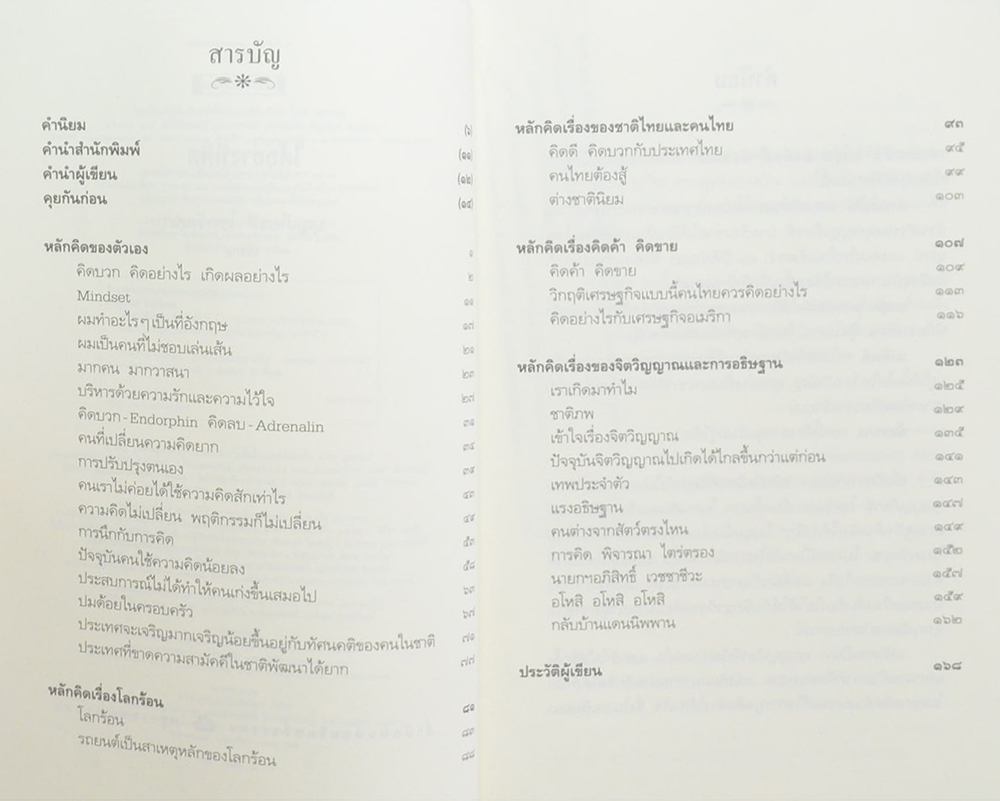 สารบัญ
คำนิยม (๖)
คำนำสำนักพิมพ์ (๑๑)
คำนำผู้เขียน (๑๒)
คุยกันก่อน (๑๔)
หลักคิดของตัวเอง ๑
คิดบวก คิดอย่างไร เกิดผลอย่างไร ๒
Mindset ๑๑
ผมทำอะไรๆเป็นที่อังกฤษ ๑๗
ผมเป็นคนที่ไม่ชอบเล่นเส้น ๒๑
มากคน มากวาสนา ๒๓
บริหารด้วยความรักและความไว้ใจ ๒๗
คิดบวก-Endorphin คิดลบ-Adrenalin ๓๑
คนที่เปลี่ยนความคิดยาก ๓๕
การปรับปรุงตนเอง ๓๙
คนเราไม่ค่อยได้ใช้ความคิดสักเท่าไร ๔๓
ความคิดไม่เปลี่ยน พฤติกรรมก็ไม่เปลี่ยน ๔๙
การนึกกับการคิด ๕๓
ปัจจุบันคนใช้ความคิดน้อยลง ๕๘
ประสบการณ์ไม่ได้ทำให้คนเก่งขึ้นเสมอไป ๖๓
ปมด้อยในครอบครัว ๖๗
ประเทศจะเจริญมากเจริญน้อยขึ้นอยู่กับทัศนคติของคนในชาติ ๗๑
ประเทศที่ขาดความสามัคคีในชาติพัฒนาได้ยาก ๗๗
หลักคิดเรื่องโลกร้อน ๘๑
โลกร้อน ๘๓
รถยนต์เป็นสาเหตุหลักของโลกร้อน ๘๘
หลักคิดเรื่องของชาติไทยและคนไทย ๙๓
คิดดี คิดบวกกับประเทศไทย ๙๕
คนไทยต้องสู้ ๙๙
ต่างชาตินิยม ๑๐๓
หลักคิดเรื่องคิดค้า คิดขาย ๑๐๗
คิดค้า คิดขาย ๑๐๙
วิกฤติเศรษฐกิจแบบนี้คนไทยควรคิดอย่างไร ๑๑๓
คิดอย่างไรกับเศรษฐกิจอเมริกา ๑๑๖
หลักคิดเรื่องของจิตวิญญาณและการอธิษฐาน ๑๒๓
เราเกิดมาทำไม ๑๒๕
ชาติภพ ๑๒๙
เข้าใจเรื่องจิตวิญญาณ ๑๓๕
ปัจจุบันจิตวิญญาณไปเกิดได้ไกลขึ้นกว่าแต่ก่อน ๑๔๑
เทพประจำตัว ๑๔๓
แรงอธิษฐาน ๑๔๗
คนต่างจากสัตว์ตรงไหน ๑๔๙
การคิด พิจารณา ไตร่ตรอง ๑๕๒
นายกฯอภิสิทธิ์ เวชชาชีวะ ๑๕๗
อโหสิ อโหสิ อโหสิ ๑๕๙
กลับบ้านแดนนิพพาน ๑๖๒
ประวัติผู้เขียน ๑๖๘